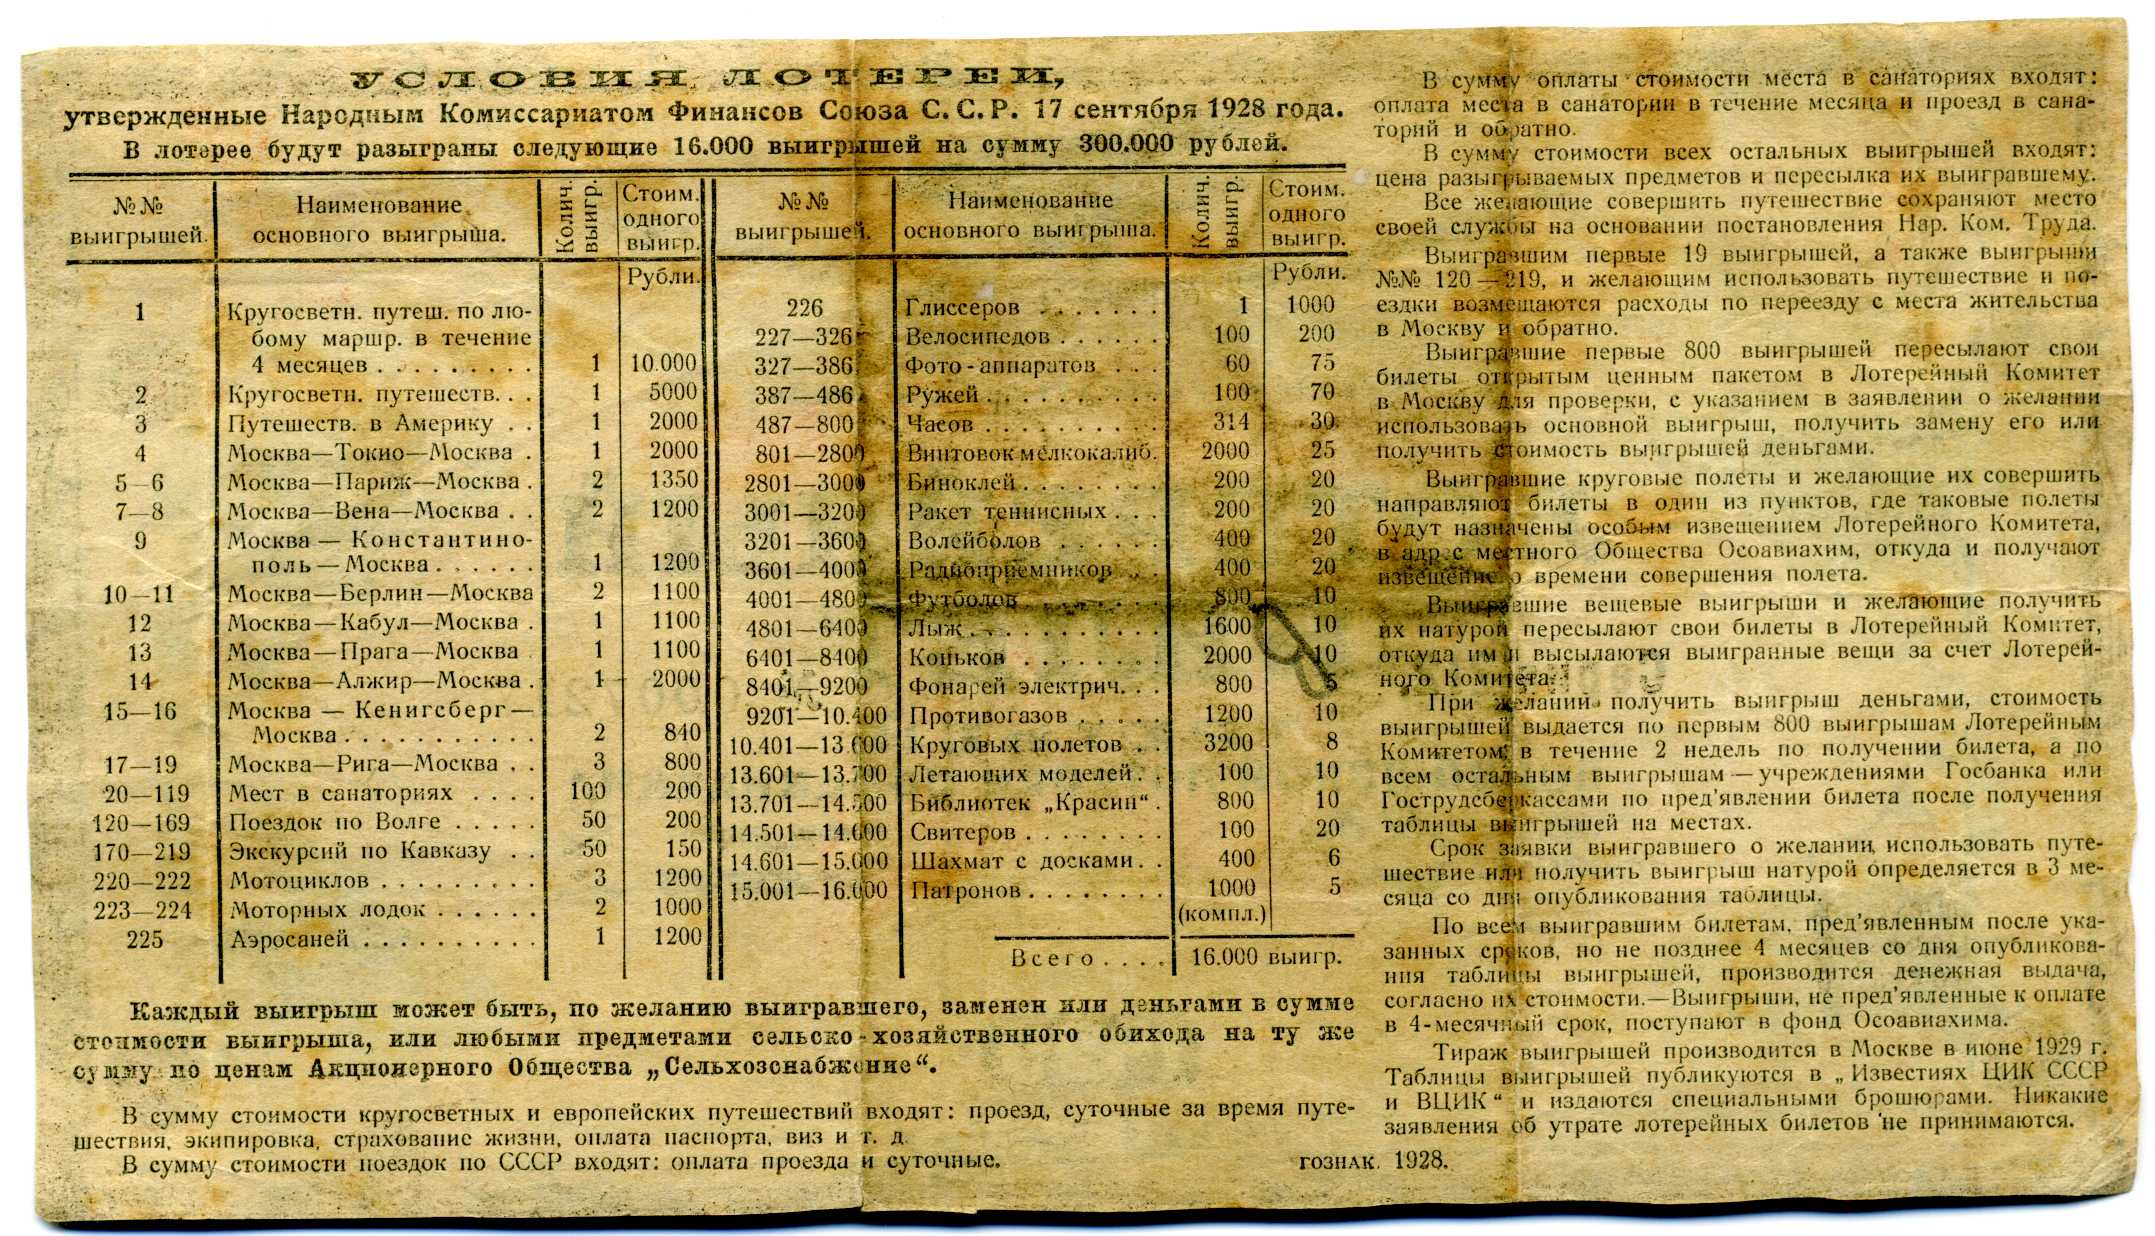 УСЛОВИЯ ЛОТЕРЕИ,
утвержденные Народным Комиссариатом Финансов Союза С.С.Р. 17 сентября 1928 года.
В лотерее будут разыграны следующие 16.000 выигрышей на сумму 300.000 рублей.
№№ выигрышей. Наименование основного выигрыша. Колич. выигр. Стоим. одного выигр.
Рубли.
1 Кругосветн. путеш. по лю-
бому маршр. в течение
4 месяцев . . . . . . . . . 1 10.000
2 Кругосветн. путешеств. . . 1 5000
3 Путешеств. в Америку . . 1 2000
4 Москва—Токио—Москва . 1 2000
5—6 Москва—Париж—Москва . 2 1350
7—8 Москва—Вена—Москва . . 2 1200
9 Москва — Константино-
поль — Москва . . . . . . 1 1200
10—11 Москва—Берлин—Москва 2 1100
12 Москва—Кабул—Москва . 1 1100
13 Москва—Прага—Москва 1 1100
14 Москва—Алжир—Москва . 1 2000
15—16 Москва — Кенигсберг —
Москва . . . . . . . . . . . 2 840
17—19 Москва—Рига—Москва . . 3 800
20—119 Мест в санаториях . . . . 100 200
120—169 Поездок по Волге . . . . . 50 200
170—219 Экскурсий по Кавказу . . 50 150
220—222 Мотоциклов . . . . . . . . . 3 1200
223—224 Моторных лодок . . . . . . 2 1000
225 Аэросаней . . . . . . . . . . 1 1200
№№ выигрышей. Наименование основного выигрыша. Колич. выигр. Стоим. одного выигр.
Рубли.
226 Глиссеров . . . . . . . 1 1000
227—326 Велосипедов . . . . . . 100 200
327—386 Фото-аппаратов . . . 60 75
387—486 Ружей . . . . . . . . . . 100 70
487—800 Часов . . . . . . . . . . 314 30
801—2800 Винтовок мелкокалиб. 2000 25
2801—3000 Биноклей . . . . . . . . 200 20
3001—3200 Ракет теннисных . . . 200 20
3201—3600 Волейболов . . . . . . 400 20
3601—4000 Радиоприемников . . 400 20
4001—4800 Футболов . . . . . . . . 800 10
4801—6400 Лыж . . . . . . . . . . . 1600 10
6401—8400 Коньков . . . . . . . . 2000 10
8401—9200 Фонарей электрич. . . 800 5
9201—10.400 Противогазов . . . . . 1200 10
10.401—13.600 Круговых полетов . . 3200 8
13.601—13.700 Летающих моделей . . 100 10
13.701—14.500 Библиотек „Красин“ . 800 10
14.501—14.600 Свитеров . . . . . . . . 100 20
14.601—15.000 Шахмат с досками . . 400 6
15.001—16.000 Патронов . . . . . . . . 1000 5
(компл.)
Всего . . . . 16.000 выигр.
Каждый выигрыш может быть, по желанию выигравшего, заменен или деньгами в сумме
стоимости выигрыша, или любыми предметами сельско-хозяйственного обихода на ту же
сумму по ценам Акционерного Общества „Сельхозснабжение“.
В сумму стоимости кругосветных и европейских путешествий входят: проезд, суточные за время путе-
шествия, экипировка, страхование жизни, оплата паспорта, виз и т. д.
В сумму стоимости поездок по СССР входят: оплата проезда и суточные.
В сумму оплаты стоимости места в санаториях входят:
оплата места в санатории в течение месяца и проезд в сана-
торий и обратно.
В сумму стоимости всех остальных выигрышей входят:
цена разыгрываемых предметов и пересылка их выигравшему.
Все желающие совершить путешествие сохраняют место
своей службы на основании постановления Нар. Ком. Труда.
Выигравшим первые 19 выигрышей, а также выигрыши
№№ 120—219, и желающим использовать путешествие и по-
ездки возмещаются расходы по переезду с места жительства
в Москву и обратно.
Выигравшие первые 800 выигрышей пересылают свои
билеты открытым ценным пакетом в Лотерейный Комитет
в Москву для проверки, с указанием в заявлении о желании
использовать основной выигрыш, получить замену его или
получить стоимость выигрышей деньгами.
Выигравшие круговые полеты и желающие их совершить
направляют билеты в один из пунктов, где таковые полеты
будут назначены особым извещением Лотерейного Комитета,
в адрес местного Общества Осоавиахим, откуда и получают
извещение о времени совершения полета.
Выигравшие вещевые выигрыши и желающие получить
их натурой пересылают свои билеты в Лотерейный Комитет,
откуда им и высылаются выигранные вещи за счет Лотерей-
ного Комитета.
При желании получить выигрыш деньгами, стоимость
выигрышей выдается по первым 800 выигрышам Лотерейным
Комитетом в течение 2 недель по получении билета, а по
всем остальным выигрышам — учреждениями Госбанка или
Гострудсберкассами по пред’явлении билета после получения
таблицы выигрышей на местах.
Срок заявки выигравшего о желании использовать путе-
шествие или получить выигрыш натурой определяется в 3 ме-
сяца со дня опубликования таблицы.
По всем выигравшим билетам, пред’явленным после ука-
занных сроков, но не позднее 4 месяцев со дня опубликова-
ния таблицы выигрышей, производится денежная выдача,
согласно их стоимости.—Выигрыши, не пред’явленные к оплате
в 4-месячный срок, поступают в фонд Осоавиахима.
Тираж выигрышей производится в Москве в июне 1929 г.
Таблицы выигрышей публикуются в „Известиях ЦИК СССР
и ВЦИК“ и издаются специальными брошюрами. Никакие
заявления об утрате лотерейных билетов не принимаются.
ГОЗНАК. 1928.